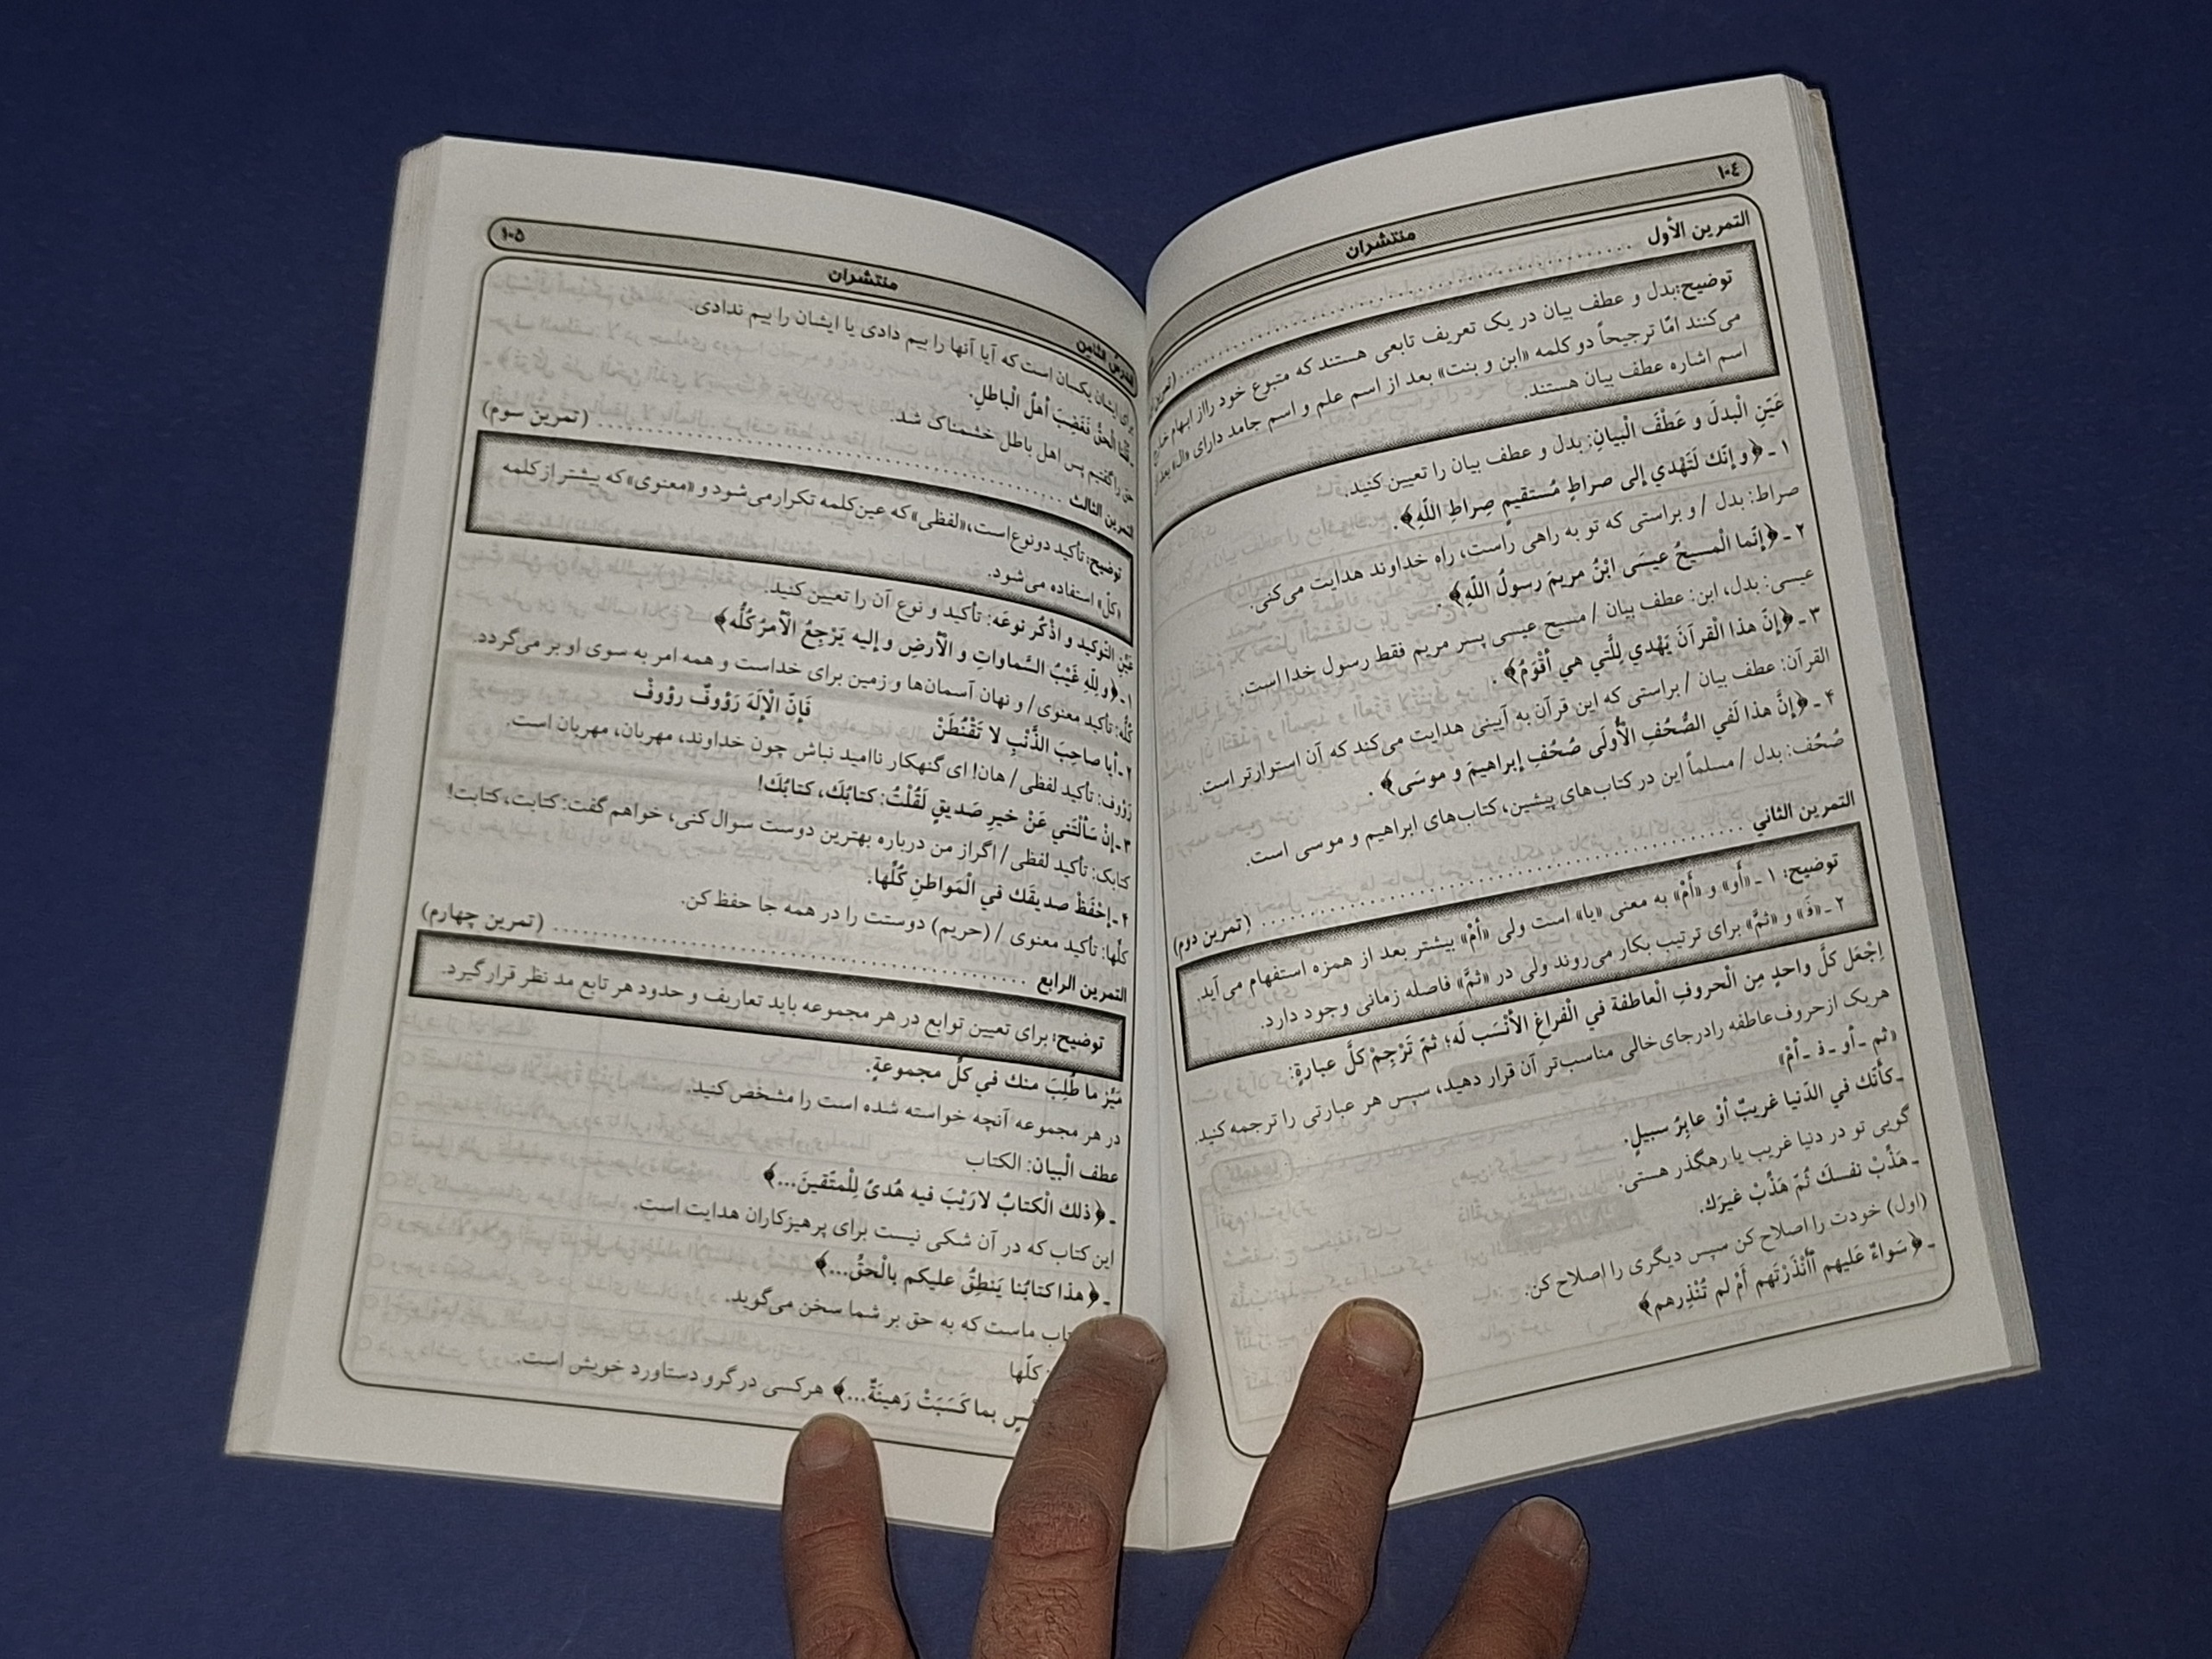 ١٠٤
منتشران
التمرين الأول ........................ (تمرین
توضیح: بدل و عطف بیان در یک تعریف تابعی هستند که متبوع خود را از ابهام خارج
می‌کنند امّا ترجیحاً دو کلمه «ابن و بنت» بعد از اسم علم و اسم جامد دارای «ال» بعد از
اسم اشاره عطف بیان هستند.
عَیّنِ الْبدلَ و عَطْفَ الْبیانِ: بدل و عطف بیان را تعیین کنید.
۱ - ﴿و إنّك لَتَهْدي إلی صراطٍ مُستقیمٍ صِراطِ اللّهِ﴾.
صراط: بدل / و براستی که تو به راهی راست، راه خداوند هدایت می‌کنی.
۲ - ﴿إنّما الْمسیحُ عیسَی ابْنُ مریمَ رسولُ اللّهِ﴾.
عیسی: بدل، ابن: عطف بیان / مسیح عیسی پسر مریم فقط رسول خدا است.
۳ - ﴿إنّ هذا الْقرآنَ یَهْدي لِلَّتي هي أقْوَمُ﴾.
القرآن: عطف بیان / براستی که این قرآن به آیینی هدایت می‌کند که آن استوارتر است.
۴ - ﴿إنَّ هذا لَفي الصُّحُفِ الْأُولَی صُحُفِ إبراهیمَ و موسَی﴾.
صُحُف: بدل / مسلماً این در کتاب‌های پیشین، کتاب‌های ابراهیم و موسی است.
التمرين الثاني ........................ (تمرین دوم)
توضیح: ۱ - «أو» و «أمْ» به معنی «یا» است ولی «أمْ» بیشتر بعد از همزه استفهام می‌آید.
۲ - «فَ» و «ثمَّ» برای ترتیب بکار می‌روند ولی در «ثمَّ» فاصله زمانی وجود دارد.
اِجْعَل کلَّ واحدٍ مِن الْحروفِ الْعاطفة في الْفراغِ الأنْسَب لَه؛ ثمّ تَرْجِمْ کلَّ عبارةٍ:
هریک از حروف عاطفه را در جای خالی مناسب‌تر آن قرار دهید، سپس هر عبارتی را ترجمه کنید.
«ثم - أو - فَ - أمْ»
- کأنّك في الدّنیا غریبٌ أوْ عابِرُ سبیلٍ.
گویی تو در دنیا غریب یا رهگذر هستی.
- هَذِّبْ نفسكَ ثُمّ هَذِّبْ غیرَك.
(اول) خودت را اصلاح کن سپس دیگری را اصلاح کن.
- ﴿سَواءٌ عَلیهم أأنْذَرْتَهم أمْ لم تُنْذِرهم﴾
الثامن
منتشران
١٠٥
برای ایشان یکسان است که آیا آنها را بیم دادی یا ایشان را بیم ندادی.
- قُلْنا الْحقَّ فَغَضِبَ أهلُ الْباطلِ.
حق را گفتیم پس اهل باطل خشمناک شد.
التمرين الثالث ........................ (تمرین سوم)
توضیح: تأکید دو نوع است، «لفظی» که عین کلمه تکرار می‌شود و «معنوی» که بیشتر از کلمه
«کلّ» استفاده می‌شود.
عَیّنِ التّوکید و اذْکُر نوعَه: تأکید و نوع آن را تعیین کنید.
۱ - ﴿و لِلّهِ غَیْبُ السَّماواتِ و الْأرضِ و إلیه یَرْجِعُ الْأمرُ کُلُّه﴾
کُلُّه: تأکید معنوی / و نهان آسمان‌ها و زمین برای خداست و همه امر به سوی او بر می‌گردد.
۲ - أیا صاحِبَ الذَّنْبِ لا تَقْنُطَنْ فَإنّ الْإلَهَ رَؤُوفٌ رؤُوفْ
رَؤُوف: تأکید لفظی / هان! ای گنهکار ناامید نباش چون خداوند، مهربان، مهربان است.
۳ - إنْ سَألْتَني عَنْ خیرِ صَدیقٍ لَقُلْتُ: کتابُكَ، کتابُكَ!
کتابک: تأکید لفظی / اگر از من درباره بهترین دوست سوال کنی، خواهم گفت: کتابت، کتابت!
۴ - إحْفَظْ صدیقَك في الْمَواطنِ کُلِّها.
کلّها: تأکید معنوی / (حریم) دوستت را در همه جا حفظ کن.
التمرين الرابع ........................ (تمرین چهارم)
توضیح: برای تعیین توابع در هر مجموعه باید تعاریف و حدود هر تابع مد نظر قرار گیرد.
مَیّز ما طُلِبَ منك في کلّ مجموعةٍ.
در هر مجموعه آنچه خواسته شده است را مشخص کنید.
عطف الْبیان: الکتاب
- ﴿ذلك الْکتابُ لا رَیْبَ فیه هُدیً لِلْمتّقینَ...﴾
این کتاب که در آن شکی نیست برای پرهیزکاران هدایت است.
- ﴿هذا کتابُنا یَنطِقُ علیکم بالْحقِّ...﴾
ماست که به حق بر شما سخن می‌گوید.
کلّها
بما کَسَبَتْ رَهینَةٌ...﴾ هرکسی در گرو دستاورد خویش است.